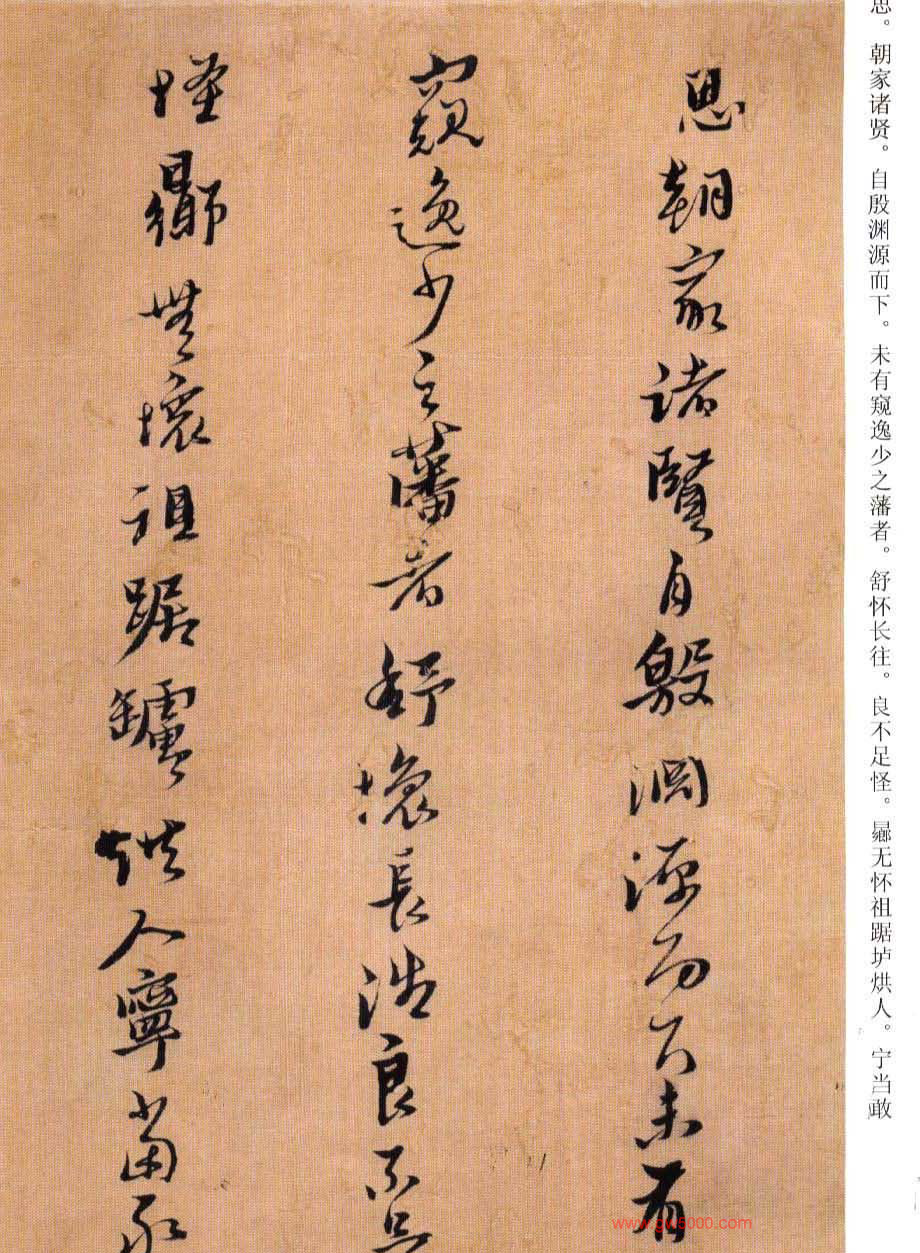 思。朝家诸贤。自殷渊源而下。未有窥逸少之藩者。舒怀长往。良不足怪。曏无怀祖踞垆烘人。宁当敢
思朝家諸賢自殷淵源而下未有
窺逸少之藩者舒懷長往良不足
怪曏無懷祖踞鑪烘人寧當
www.gw5000.com